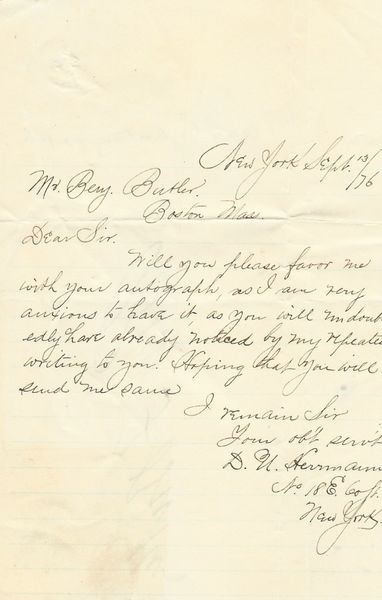 New York Sept. 13/76
Mr. Benj. Butler.
Boston Mass.
Dear Sir.
Will you please favor me
with your autograph, as I am very
anxious to have it, as you will undoubt
edly have already noticed by my repeated
writing to you. Hoping that you will
send me same
I remain Sir
Your ob't serv't
D. U. Herrmann
No. 18 E. 60 St.
New York.